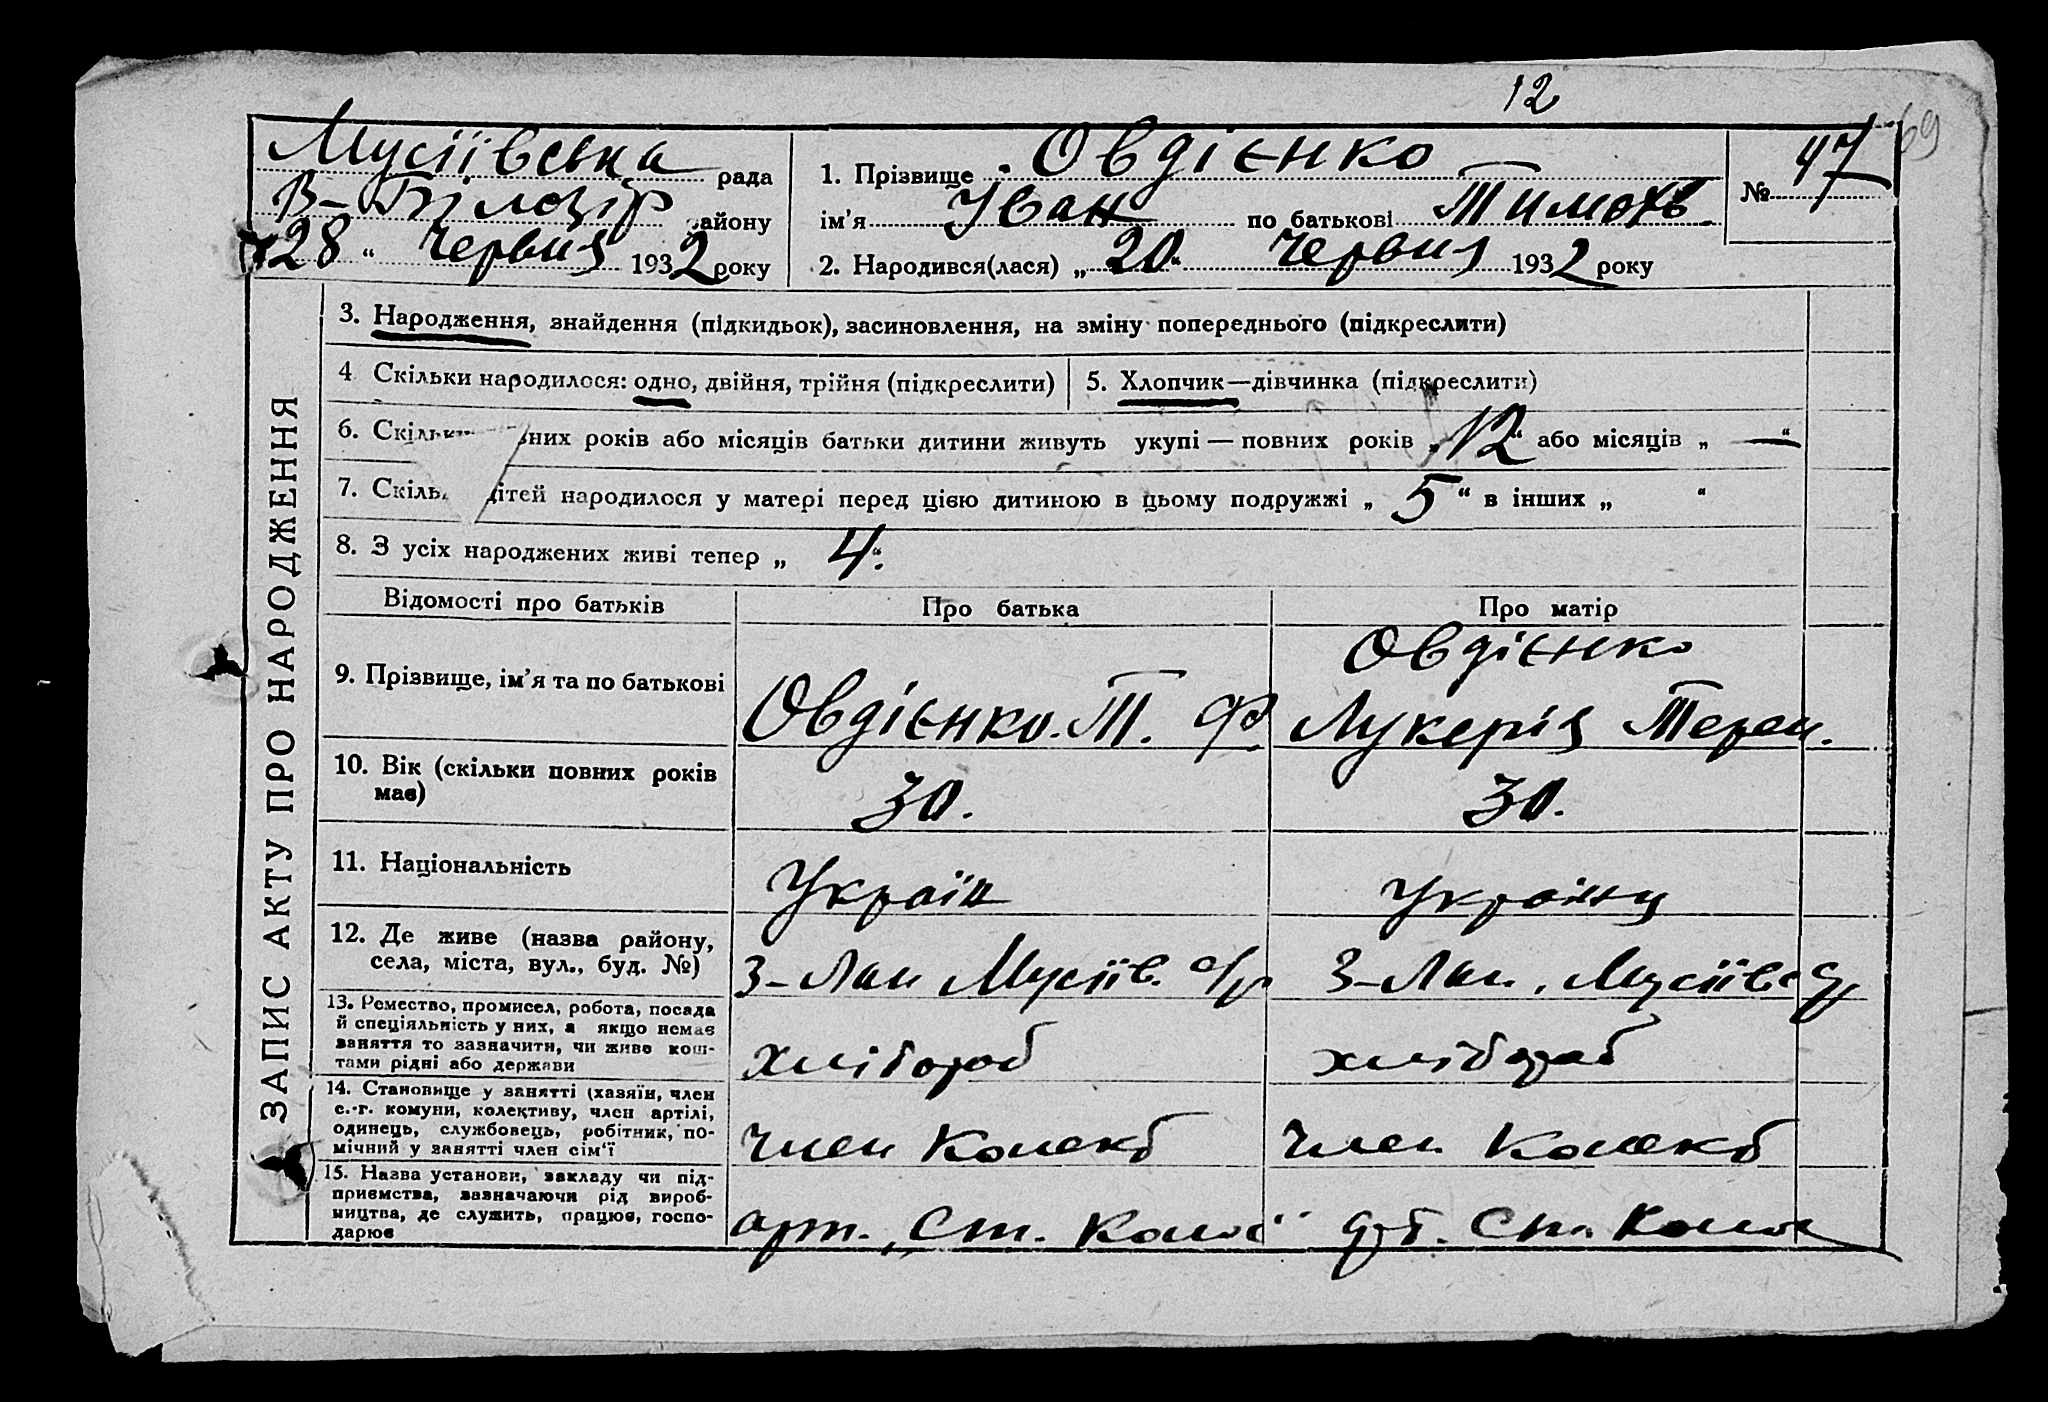 12
69
Мусіївська рада
В-Білозір району
28 " Червня 1932 року
1. Прізвище Овдієнко
ім'я Іван по батькові Тимохв
2. Народився(лася) „ 20 " Червня 1932 року
№ 47
ЗАПИС АКТУ ПРО НАРОДЖЕННЯ
3. Народження, знайдення (підкидьок), засиновлення, на зміну попереднього (підкреслити)
4 Скільки народилося: одно, двійня, трійня (підкреслити)
5. Хлопчик—дівчинка (підкреслити)
6. Скільки вних років або місяців батьки дитини живуть укупі — повних років „ 12 " або місяців „ — "
7. Скіль дітей народилося у матері перед цією дитиною в цьому подружжі „ 5 " в інших „ "
8. З усіх народжених живі тепер „ 4 "
Відомості про батьків
Про батька
Про матір
9. Прізвище, ім'я та по батькові
Овдієнко. Т. Ф
Овдієнко
Лукерія Терен.
10. Вік (скільки повних років
має)
30.
30.
11. Національність
Україн
Україну
12. Де живе (назва району,
села, міста, вул., буд. №)
З-Лан Мусіїв. с/р
З-Лан. Мусіївс
13. Ремество, промисел, робота, посада
й спеціяльність у них, а якщо немає
заняття то зазначити, чи живе кош-
тами рідні або держави
хлібороб
хлібороб
14. Становище у занятті (хазяїн, член
с.-г. комуни, колективу, член артілі,
одинець, службовець, робітник, по-
мічний у занятті член сім'ї
Член Колект
Член Колект
15. Назва установи, закладу чи під-
приємства, зазначаючи рід вироб-
ництва, де служить, працює, госпо-
дарює
арт. „Ст. Колос"
Ст. Колос